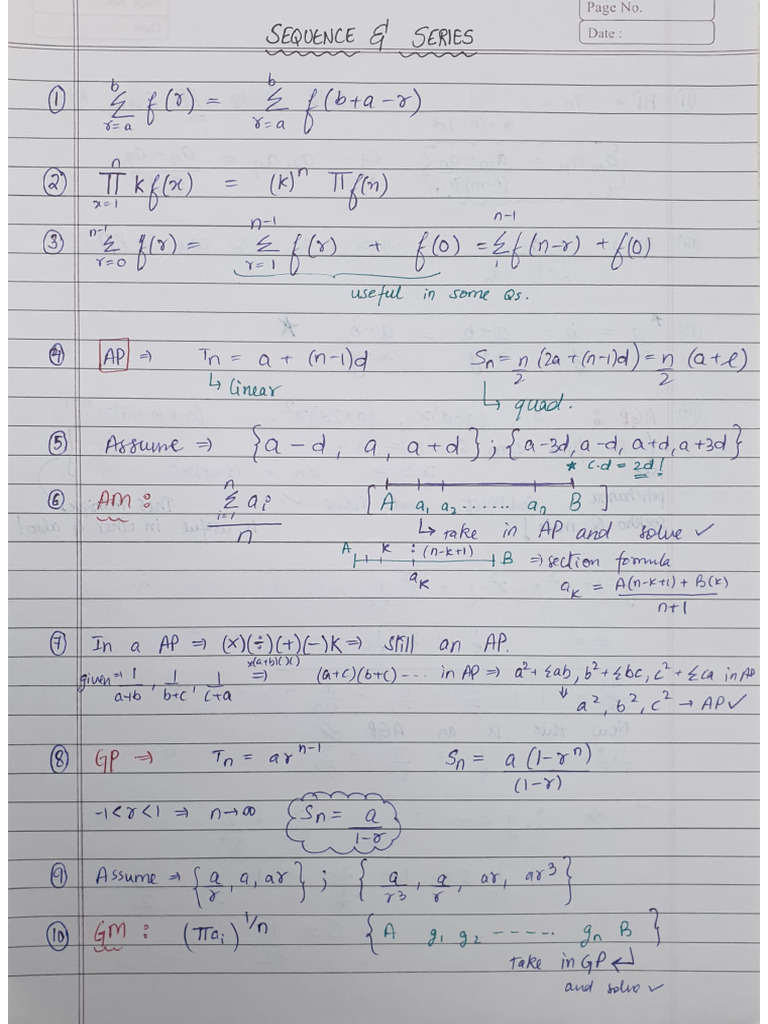 Page No.
Date :
SEQUENCE & SERIES
① b Σ r=a f(r) = b Σ r=a f(b+a-r)
② n Π x=1 kf(x) = (k)ⁿ Πf(n)
③ n-1 Σ r=0 f(r) = n-1 Σ r=1 f(r) + f(0) = n-1 Σ 1 f(n-r) + f(0)
useful in some Qs.
④ AP ⇒ Tn = a + (n-1)d Sn = n/2 (2a+(n-1)d) = n/2 (a+l)
↳ linear ↳ quad.
⑤ Assume ⇒ {a-d, a, a+d} ; {a-3d, a-d, a+d, a+3d}
* c.d = 2d!
⑥ AM : n Σ i=1 ai / n [A a1 a2 ...... an B]
↳ take in AP and solve ✓
A k : (n-k+1) B ⇒ section formula
ak ak = A(n-k+1) + B(k) / n+1
⑦ In a AP ⇒ (x)(÷)(+)(-)K ⇒ still an AP.
given → 1/a+b, 1/b+c, 1/c+a x(a+b)( )( ) ⇒ (a+c)(b+c) ---- in AP ⇒ a²+Σab, b²+Σbc, c²+Σca in AP
⇓ a², b², c² → AP✓
⑧ GP ⇒ Tn = arⁿ⁻¹ Sn = a(1-rⁿ)/(1-r)
-1<r<1 ⇒ n→∞ Sn = a/1-r
⑨ Assume → {a/r, a, ar} ; {a/r³, a/r, ar, ar³}
⑩ GM : (Πai)^1/n {A g1 g2 ----... gn B}
take in GP ↵
and solve ✓